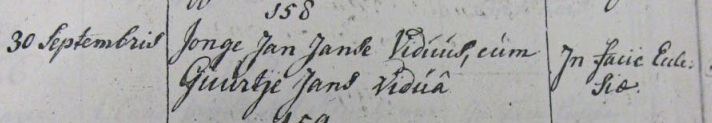 158
30 Septembris
Jonge Jan Janse Viduus, cum
Guurtje Jans Viduâ
In facie Eccle:
siæ.
159